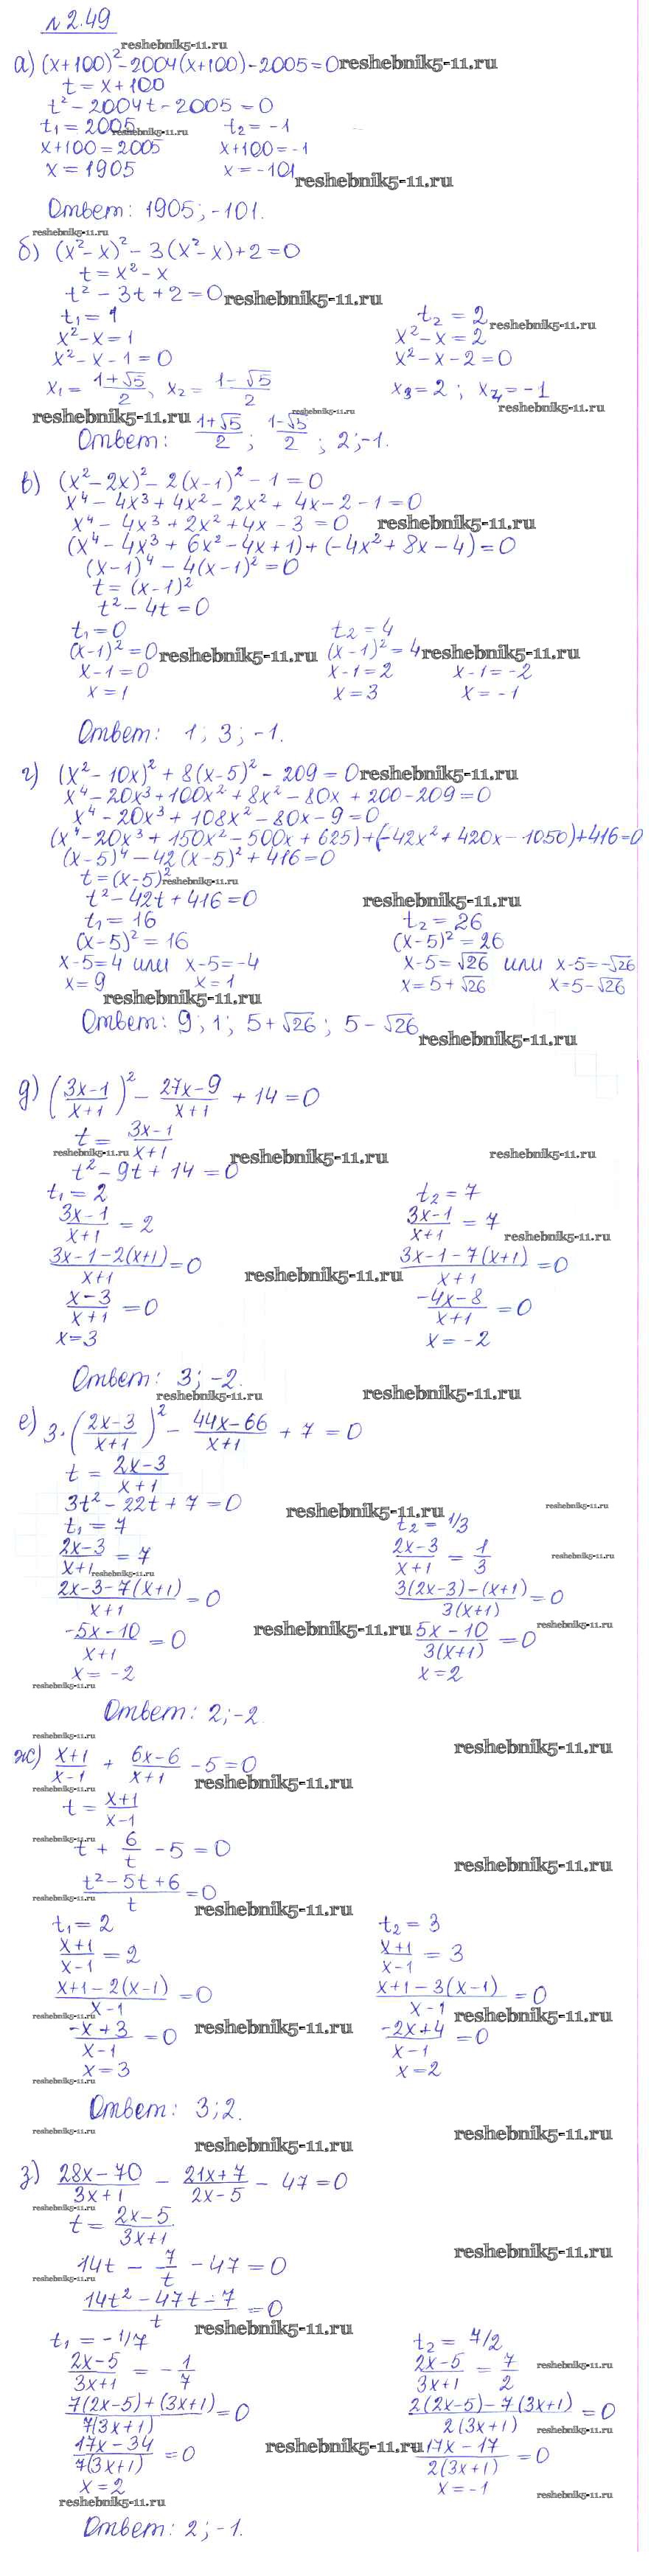 №2.49
reshebnik5-11.ru
а) (x+100)² - 2004(x+100) - 2005 = 0 reshebnik5-11.ru
t = x+100
t² - 2004t - 2005 = 0
t₁ = 2005 t₂ = -1
reshebnik5-11.ru
x+100 = 2005 x+100 = -1
x = 1905 x = -101
reshebnik5-11.ru
Ответ: 1905; -101.
reshebnik5-11.ru
б) (x²-x)² - 3(x²-x) + 2 = 0
t = x² - x
t² - 3t + 2 = 0 reshebnik5-11.ru
t₁ = 1 t₂ = 2
reshebnik5-11.ru
x²-x = 1 x²-x = 2
x²-x-1 = 0 x²-x-2 = 0
x₁ = (1+√5)/2, x₂ = (1-√5)/2 x₃ = 2; x₄ = -1
reshebnik5-11.ru reshebnik5-11.ru reshebnik5-11.ru
Ответ: (1+√5)/2; (1-√5)/2; 2; -1.
в) (x²-2x)² - 2(x-1)² - 1 = 0
x⁴ - 4x³ + 4x² - 2x² + 4x - 2 - 1 = 0
x⁴ - 4x³ + 2x² + 4x - 3 = 0 reshebnik5-11.ru
(x⁴ - 4x³ + 6x² - 4x + 1) + (-4x² + 8x - 4) = 0
(x-1)⁴ - 4(x-1)² = 0
t = (x-1)²
t² - 4t = 0
t₁ = 0 t₂ = 4
(x-1)² = 0 reshebnik5-11.ru (x-1)² = 4 reshebnik5-11.ru
x-1 = 0 x-1 = 2 x-1 = -2
x = 1 x = 3 x = -1
Ответ: 1; 3; -1.
г) (x²-10x)² + 8(x-5)² - 209 = 0 reshebnik5-11.ru
x⁴ - 20x³ + 100x² + 8x² - 80x + 200 - 209 = 0
x⁴ - 20x³ + 108x² - 80x - 9 = 0
(x⁴ - 20x³ + 150x² - 500x + 625) + (-42x² + 420x - 1050) + 416 = 0
(x-5)⁴ - 42(x-5)² + 416 = 0
t = (x-5)² reshebnik5-11.ru
t² - 42t + 416 = 0 reshebnik5-11.ru
t₁ = 16 t₂ = 26
(x-5)² = 16 (x-5)² = 26
x-5 = 4 или x-5 = -4 x-5 = √26 или x-5 = -√26
x = 9 x = 1 x = 5+√26 x = 5-√26
reshebnik5-11.ru
Ответ: 9; 1; 5+√26; 5-√26
reshebnik5-11.ru
д) ((3x-1)/(x+1))² - (27x-9)/(x+1) + 14 = 0
t = (3x-1)/(x+1)
reshebnik5-11.ru reshebnik5-11.ru reshebnik5-11.ru
t² - 9t + 14 = 0
t₁ = 2 t₂ = 7
(3x-1)/(x+1) = 2 (3x-1)/(x+1) = 7
reshebnik5-11.ru
(3x-1-2(x+1))/(x+1) = 0 (3x-1-7(x+1))/(x+1) = 0
reshebnik5-11.ru
(x-3)/(x+1) = 0 (-4x-8)/(x+1) = 0
x = 3 x = -2
Ответ: 3; -2.
reshebnik5-11.ru reshebnik5-11.ru
е) 3·((2x-3)/(x+1))² - (44x-66)/(x+1) + 7 = 0
t = (2x-3)/(x+1)
3t² - 22t + 7 = 0 reshebnik5-11.ru reshebnik5-11.ru
t₁ = 7 t₂ = 1/3
(2x-3)/(x+1) = 7 (2x-3)/(x+1) = 1/3
reshebnik5-11.ru reshebnik5-11.ru
(2x-3-7(x+1))/(x+1) = 0 (3(2x-3)-(x+1))/(3(x+1)) = 0
(-5x-10)/(x+1) = 0 reshebnik5-11.ru (5x-10)/(3(x+1)) = 0 reshebnik5-11.ru
x = -2 x = 2
reshebnik5-11.ru
Ответ: 2; -2.
reshebnik5-11.ru reshebnik5-11.ru
ж) (x+1)/(x-1) + (6x-6)/(x+1) - 5 = 0
reshebnik5-11.ru reshebnik5-11.ru
t = (x+1)/(x-1)
reshebnik5-11.ru
t + 6/t - 5 = 0
reshebnik5-11.ru
(t²-5t+6)/t = 0
reshebnik5-11.ru reshebnik5-11.ru
t₁ = 2 t₂ = 3
(x+1)/(x-1) = 2 (x+1)/(x-1) = 3
(x+1-2(x-1))/(x-1) = 0 (x+1-3(x-1))/(x-1) = 0
reshebnik5-11.ru reshebnik5-11.ru
(-x+3)/(x-1) = 0 reshebnik5-11.ru (-2x+4)/(x-1) = 0
x = 3 x = 2
reshebnik5-11.ru
Ответ: 3; 2.
reshebnik5-11.ru reshebnik5-11.ru
reshebnik5-11.ru
з) (28x-70)/(3x+1) - (21x+7)/(2x-5) - 47 = 0
reshebnik5-11.ru
t = (2x-5)/(3x+1)
reshebnik5-11.ru
14t - 7/t - 47 = 0
reshebnik5-11.ru
(14t²-47t-7)/t = 0
reshebnik5-11.ru
t₁ = -1/7 t₂ = 7/2
(2x-5)/(3x+1) = -1/7 (2x-5)/(3x+1) = 7/2
reshebnik5-11.ru
(7(2x-5)+(3x+1))/(7(3x+1)) = 0 (2(2x-5)-7(3x+1))/(2(3x+1)) = 0
reshebnik5-11.ru
(17x-34)/(7(3x+1)) = 0 reshebnik5-11.ru (17x-17)/(2(3x+1)) = 0
x = 2 x = -1
reshebnik5-11.ru reshebnik5-11.ru
Ответ: 2; -1.